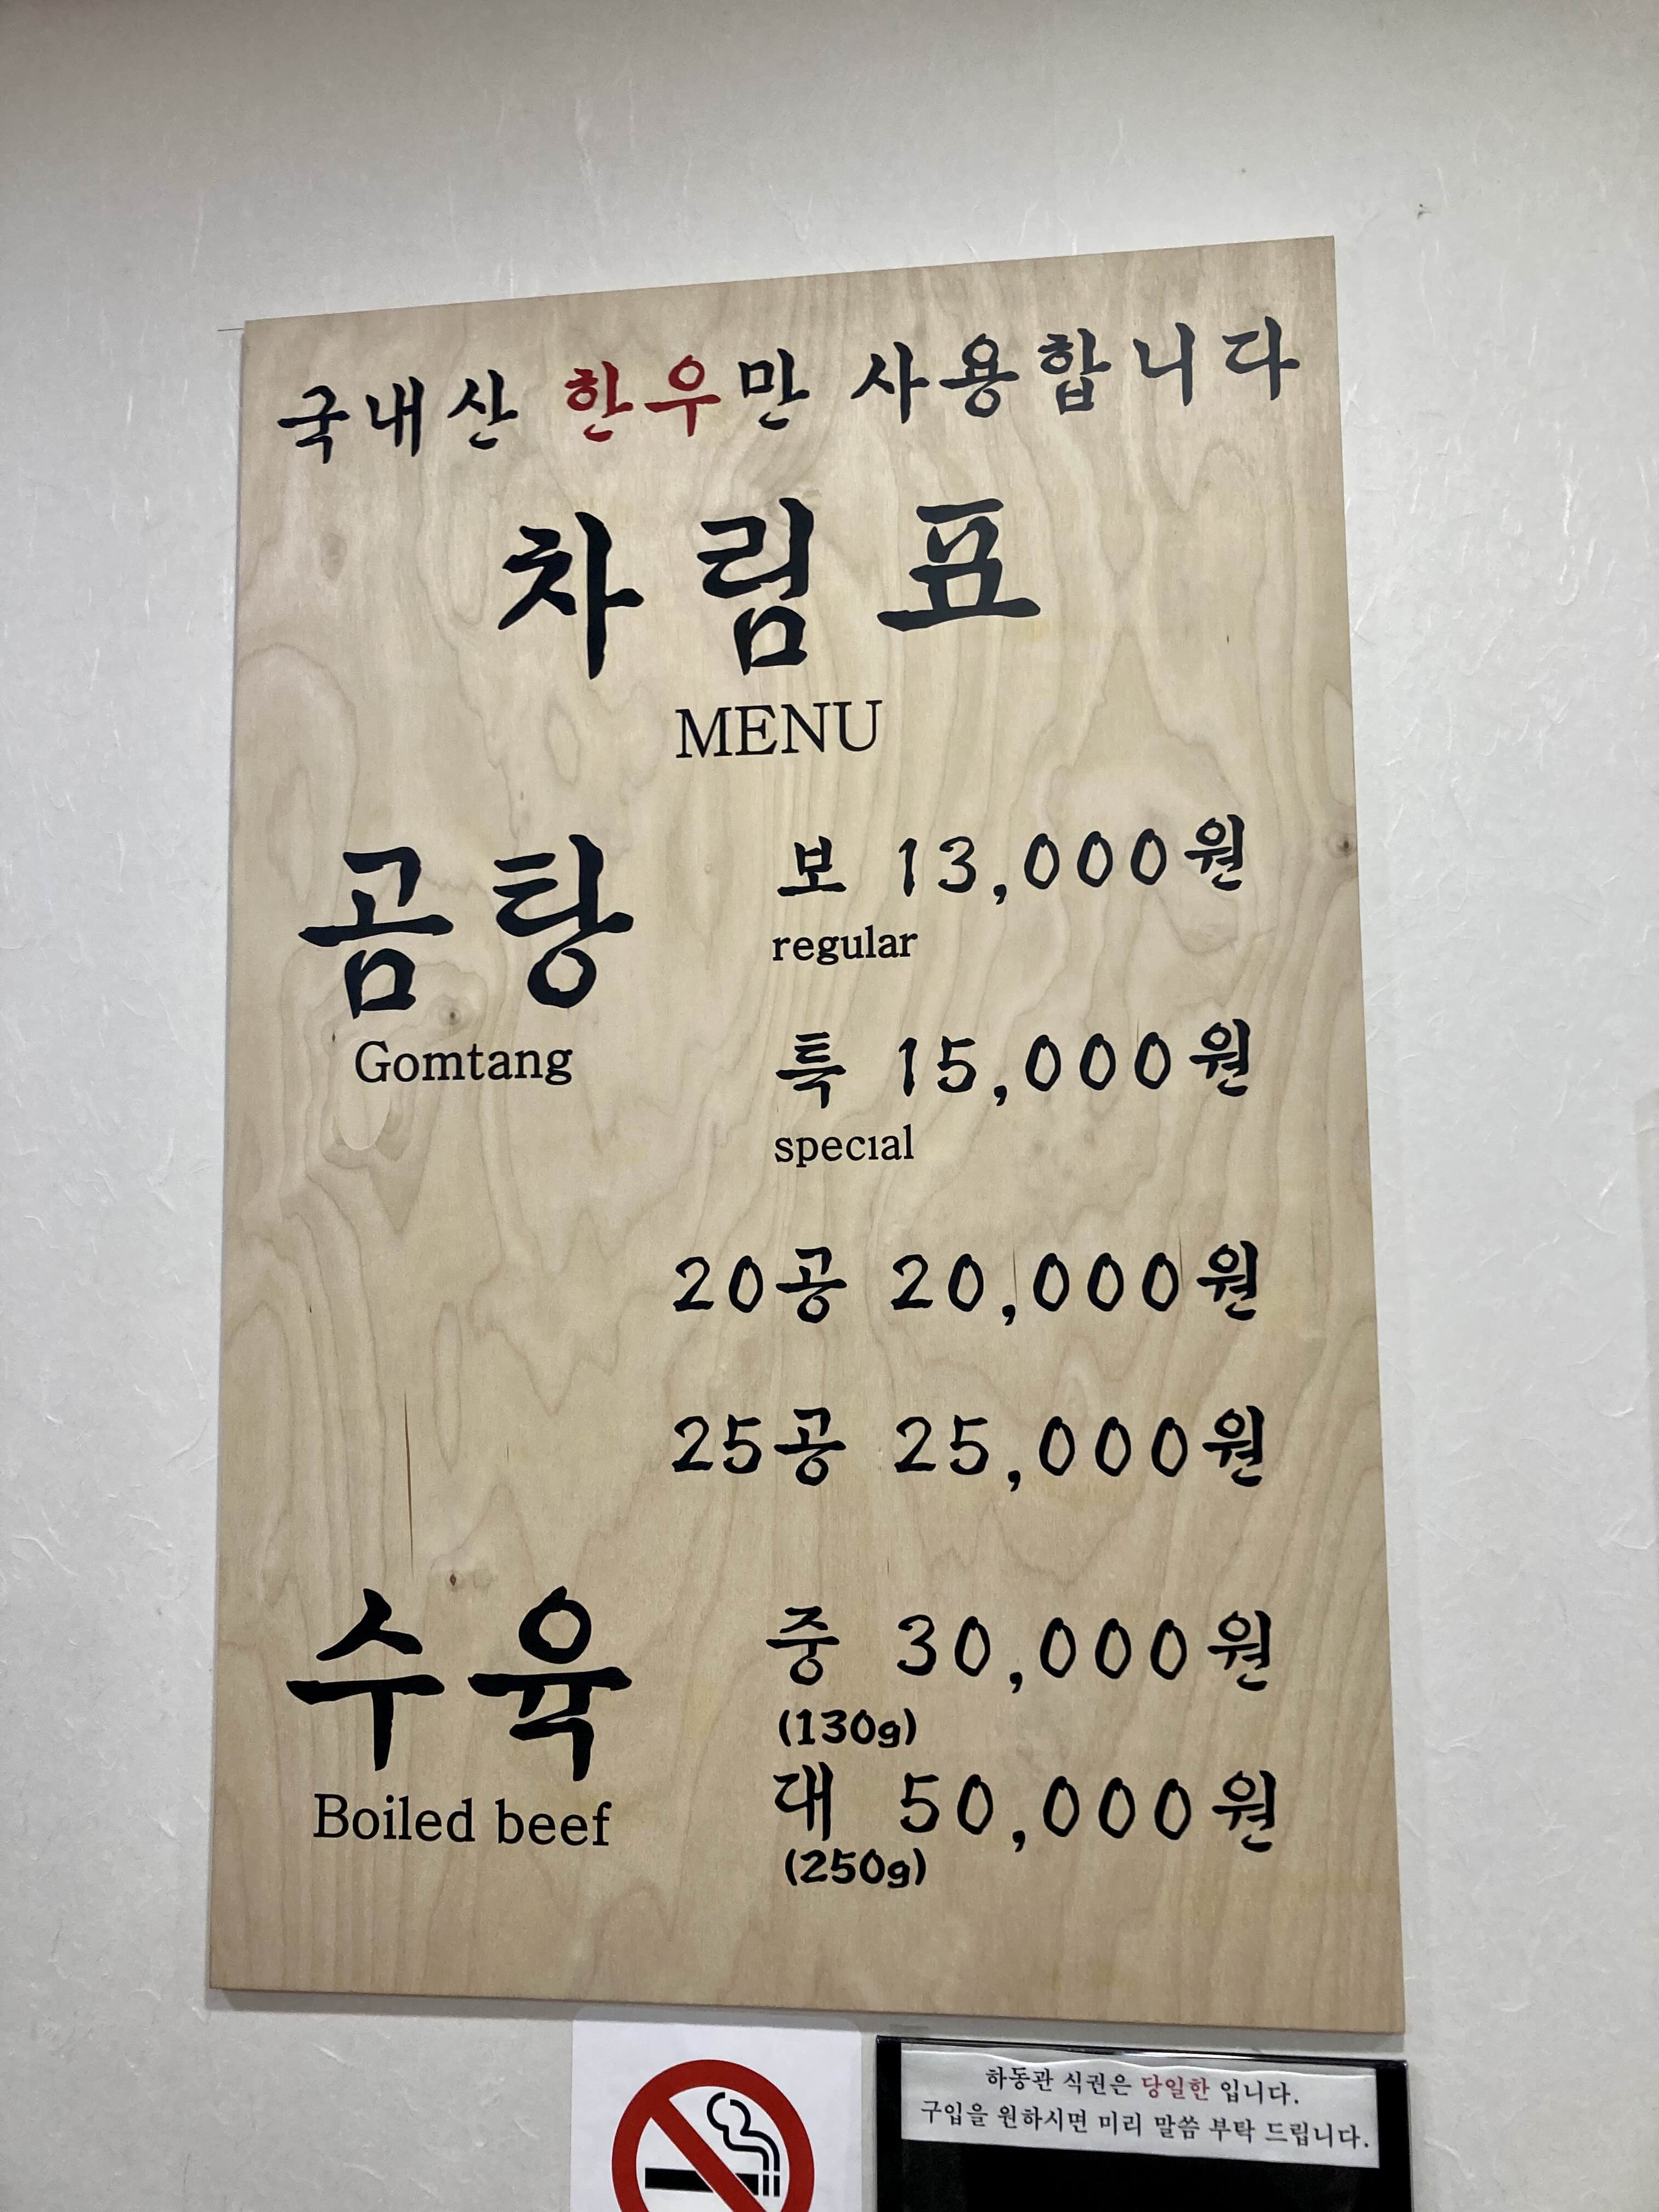 국내산 한우만 사용합니다
차림표
MENU
곰탕 보 13,000원
regular
Gomtang
특 15,000원
special
20공 20,000원
25공 25,000원
수육 중 30,000원
(130g)
Boiled beef
대 50,000원
(250g)
하동관 식권은 당일한 입니다.
구입을 원하시면 미리 말씀 부탁 드립니다.